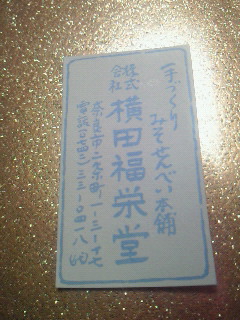 手づくり
みそせんべい本舗
株式会社
横田福栄堂
奈良市二条町一ー三ー十七
電話〇七四二ー三三ー〇四一八㈹